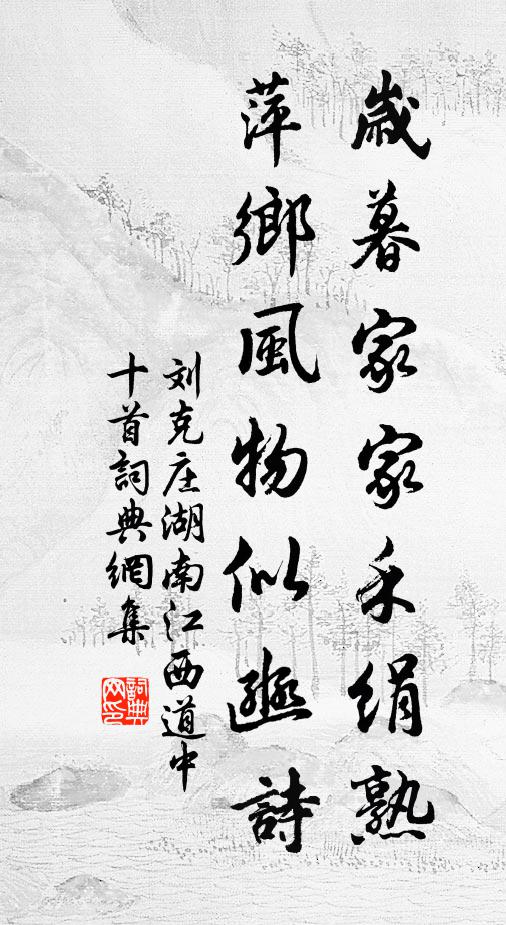 歲暮家家禾絹熟
萍鄉風物似豳詩
刘克庄湖南江西道中
十首詞典網集
詞典
网印